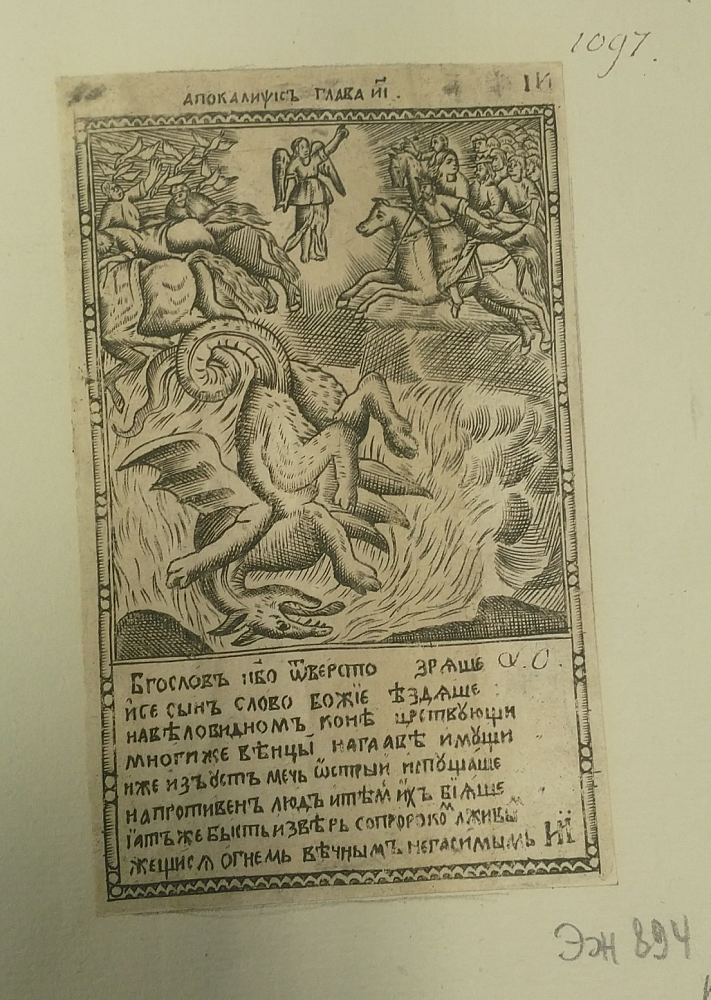 1097.
АПОКАЛИѰІСЪ ГЛАВА И҃І .
ІИ
БГОСЛОВЪ НБО ѾВЕРСТО ЗРѦШЕ
ИСЕ СЫНЪ СЛОВО БОЖІЕ ѢЗДѦШЕ
НАБѢЛОВИДНОМЪ КОНѢ ЦРСТВУЮЩИ
МНОГИЖЕ ВѢНЦЫ НАГЛАВѢ ИМУЩИ
ИЖЕ ИЗЪУСТЪ МЕЧЬ ѾСТРЫЙ ИСПУЩАШЕ
НАПРОТИВЕНЪ ЛЮДЪ ИТѢМ ИХЪ БІѦШЕ
ІАТЪЖЕ БЫСТЬ ИЗВѢРЬ СОПРОРОКОМ ЛЖИВЫ
ЖЕЩИСѦ ОГНЕМЬ ВѢЧНЫМЪ НЕГАСИМЫМЬ ИІ
Эж 894